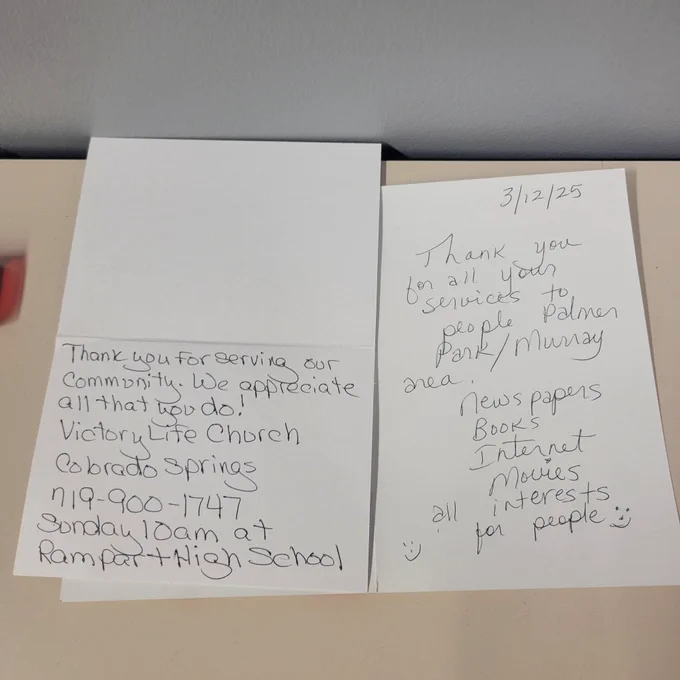 Thank you for serving our
Community. We appreciate
all that you do!
Victory Life Church
Colorado Springs
719-900-1747
Sunday 10am at
Rampart High School
3/12/25
Thank you
for all your
services to
people Palmer
Park/Murray
area.
Newspapers
Books
Internet
Movies
all interests
for people